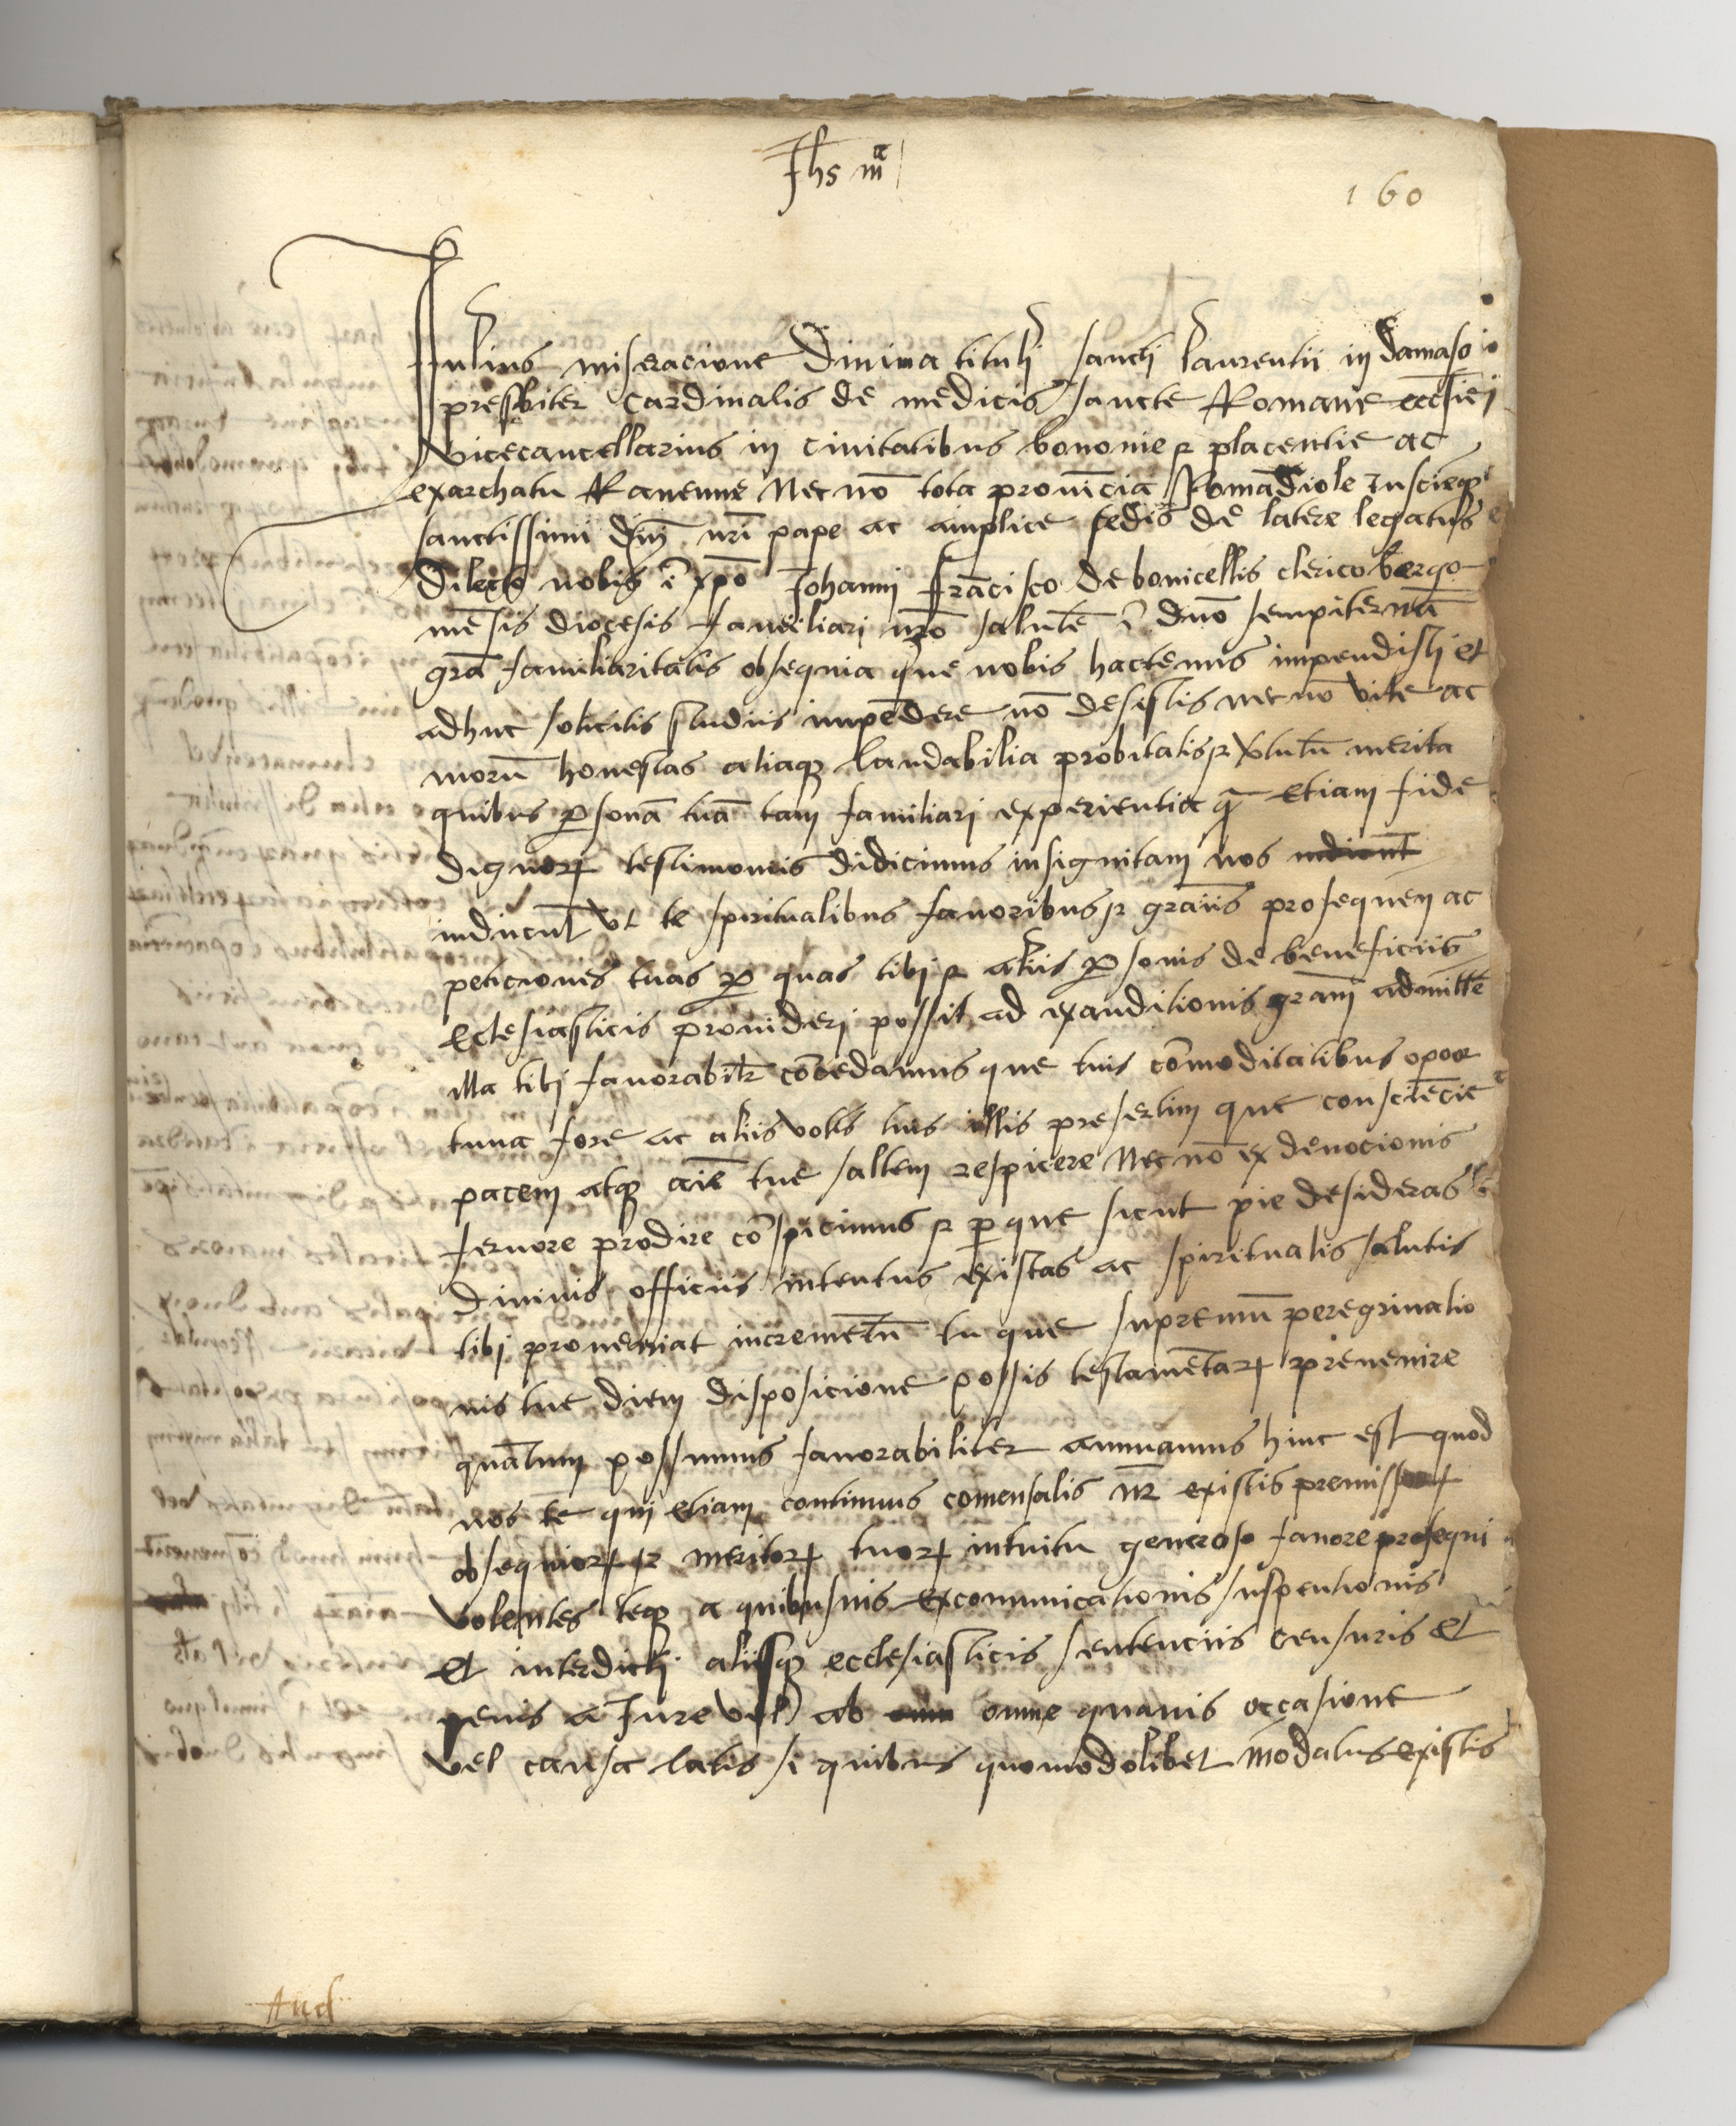 Jhs mᵃ
160
Iulius miseracione Divina tituli sancti laurentii in damaso
presbiter Cardinalis de medicis sancte Romane eccłie
vicecancellarius in Civitatibus bononie et placentie ac
exarchatu Ravenne Nec nō tota provīncia Romādiole Tuscieq
sanctissimi dm̄ nr̄i pape ac ap̄lice sedis de latere legatus
Dilecto nobis ī xp̄o Johanni Frācisco de bonicellis clerico bergo
mēsis diocesis familiari nr̄o salutē ī dn̄o sempiternā
grā familiaritatis obsequia que nobis hactenus impendisti et
adhuc solicitis studiis impēdere nō desistis nec nō vite ac
morū honestas aliaq laudabilia probitatis et v̄tutū merita
quibus psonā tuā tam familiari experientia q̄ etiam fide
dignor testimoniis didicimus insignitam nos inducūt
inducūt Vt te spiritualibus favoribus et graīis prosequen ac
peticiones tuas p quas tibi et aliis psonis de beneficiis
ecclesiasticis provideri possit ad exauditionis gram̄ admittē
illa tibi favorabilr concedamus que tuis cōmoditatibus opor
tuna fore ac aliis votis tuis illis presertim que consciēcie
pacem atq aīe tue saltem respicere Nec nō ex devocionis
fervore prodire cōspicimus et p que sicut pie desideras
Divinis officiis intentus existas ac spiritualis salutis
tibi proveniat incremētū tu que supremū peregrinatio
nis tue diem disposicione possis testamētar prevenire
quātum possumus favorabiliter annuamus hinc est quod
nos te qui etiam continuus comensalis nr̄ existis premissor
obsequior et meritor tuor intuitu generoso favore prosequi
volentes teq a quibusvis excomunicationis suspentionis
et interdicti aliisq ecclesiasticis sentenciis censuris et
penis a Jure vel ab omne quavis occasione
vel causa latis si quibus quomodolibet īnodatus existis
And